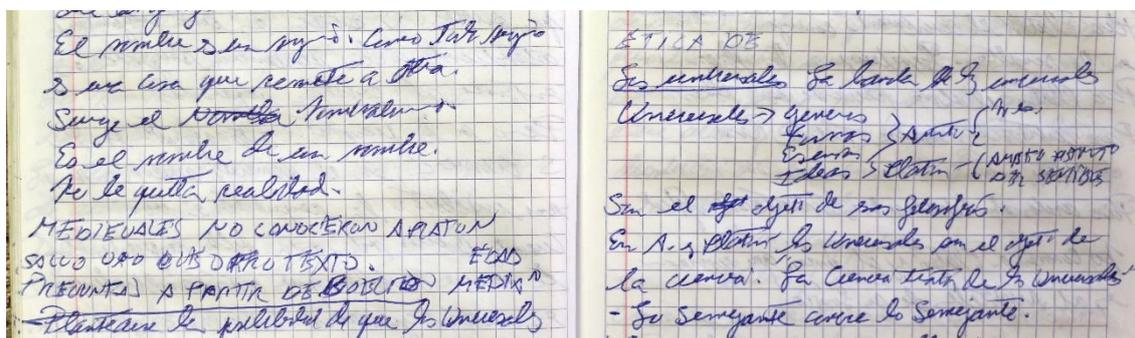 El nombre es un signo. Como tal signo
es una cosa que remite a otra.
Surge el nominalismo
Es el nombre de un nombre.
No le quita realidad.
MEDIEVALES NO CONOCIERON A PLATON
SALVO UNO QUE OTRO TEXTO. EDAD
PREGUNTAS A PARTIR DE BOECIO MEDIA
- Plantearse la posibilidad de que los universales
ETICA DE
Los universales La de los universales
Universales → géneros
formas
Ideas Platón
Son el objeto de sus filosofías.
En A. y Platón los universales son el objeto de
la ciencia. La ciencia trata de los universales
- Lo Semejante conoce lo Semejante.